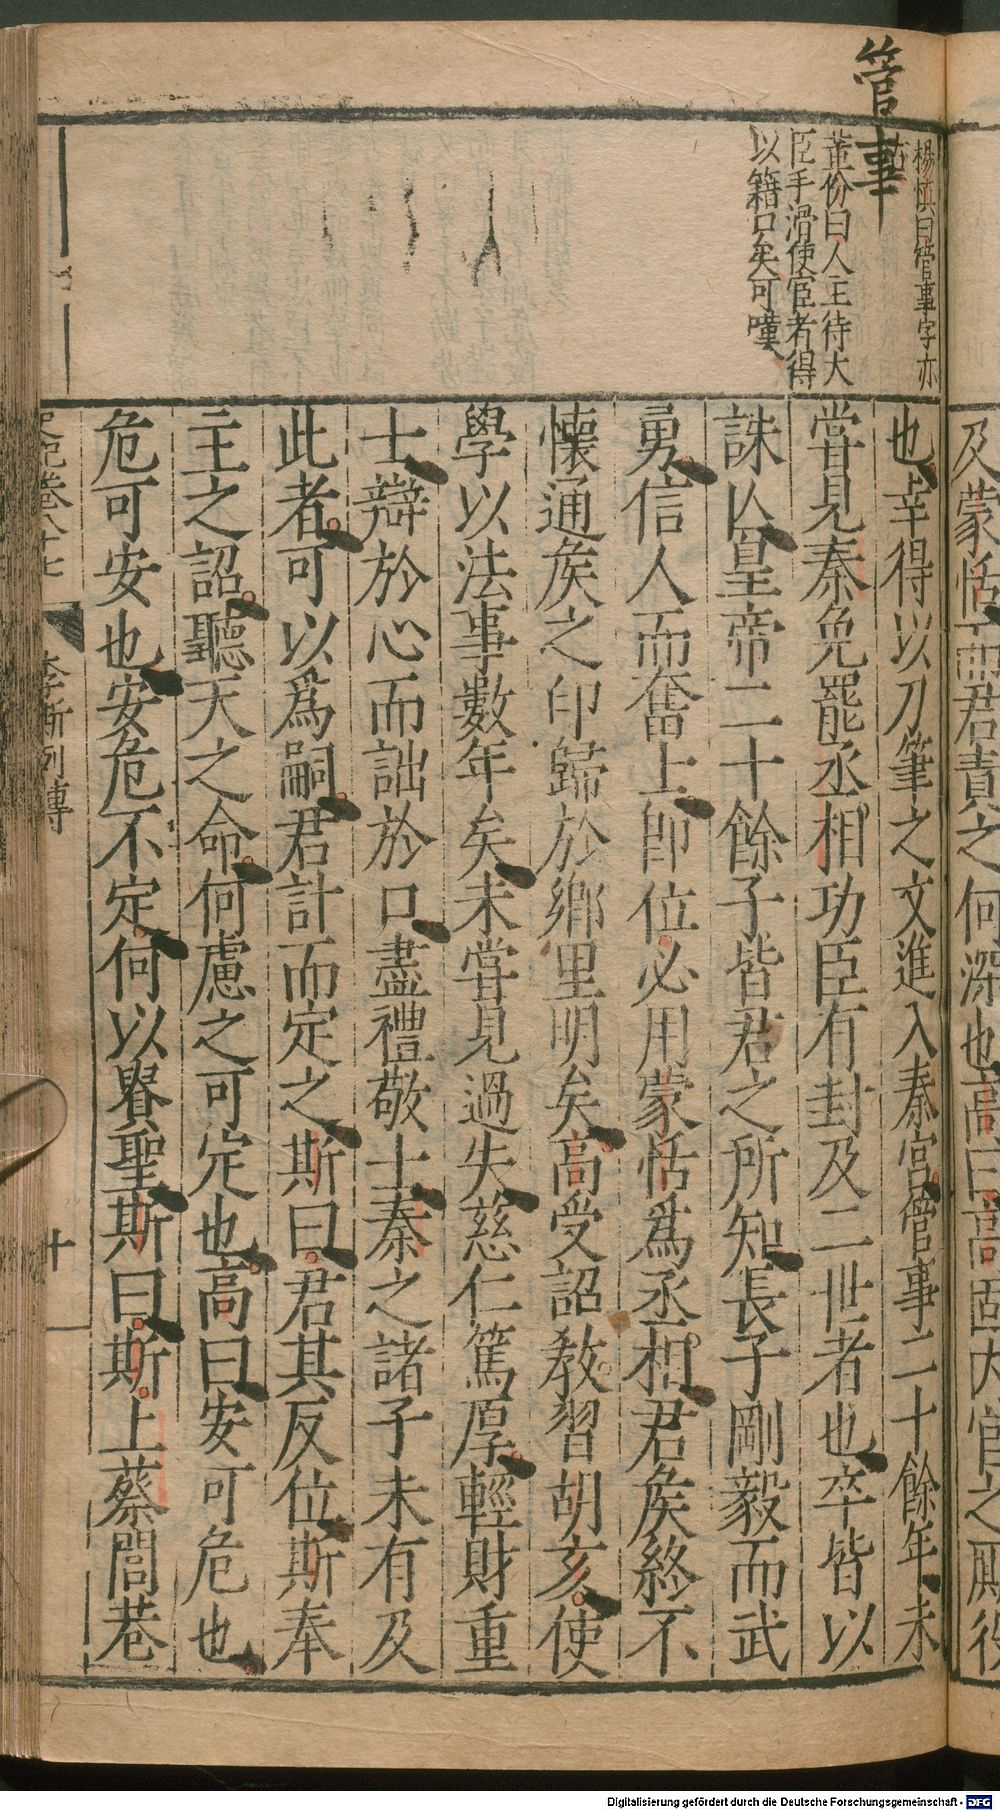 管事
楊慎曰管事字亦
古
董份曰人主待大
臣手滑使宦者得
以籍口矣可嘆
及蒙恬而君責之何深也高曰高固內官之厮役
也幸得以刀筆之文進入秦宮管事二十餘年未
嘗見秦免罷丞相功臣有封及二世者也卒皆以
誅以皇帝二十餘子皆君之所知長子剛毅而武
勇信人而奮士卽位必用蒙恬爲丞相君矦終不
懷通矦之印歸於鄉里明矣高受詔敎習胡亥使
學以法事數年矣未嘗見過失慈仁篤厚輕財重
士辯於心而詘於口盡禮敬士秦之諸子未有及
此者可以爲嗣君計而定之斯曰君其反位斯奉
主之詔聽天之命何慮之可定也高曰安可危也
危可安也安危不定何以貴聖斯曰斯上蔡閭巷
史記卷八十七
李斯列傳
十
Digitalisierung gefördert durch die Deutsche Forschungsgemeinschaft - DFG